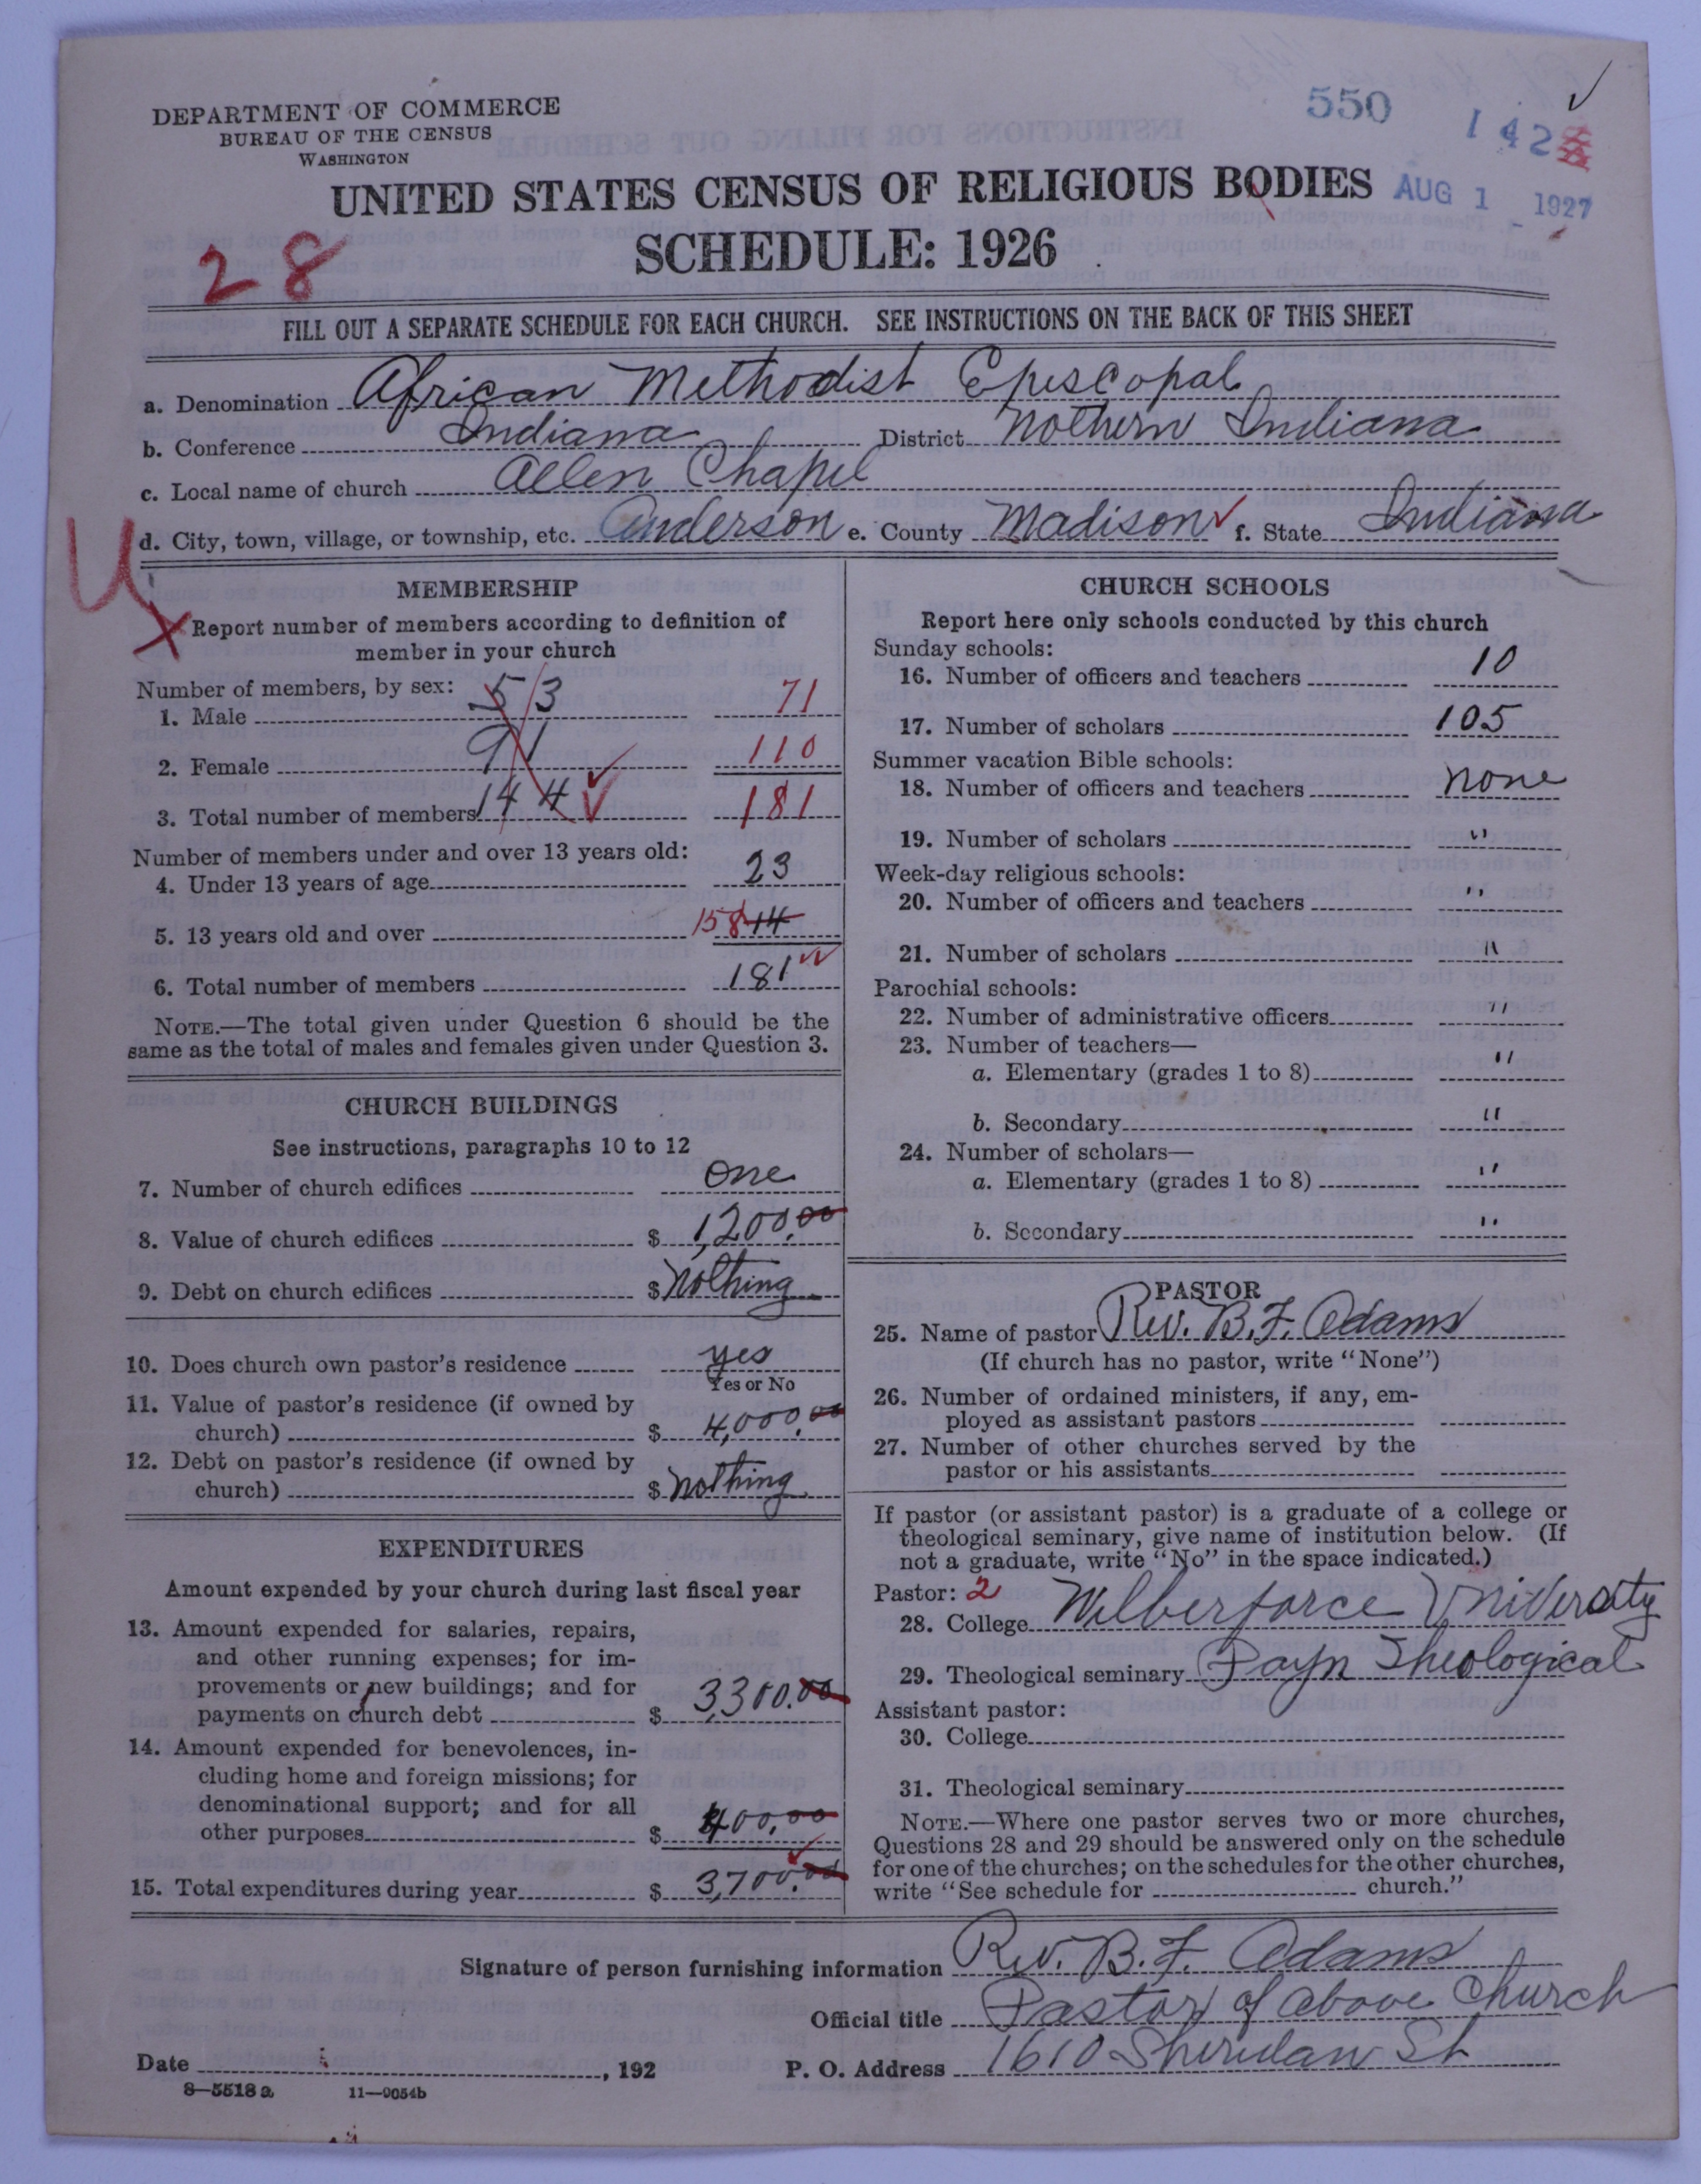 DEPARTMENT OF COMMERCE
BUREAU OF THE CENSUS
WASHINGTON
550
142
UNITED STATES CENSUS OF RELIGIOUS BODIES
AUG 1 1927
SCHEDULE: 1926
28
FILL OUT A SEPARATE SCHEDULE FOR EACH CHURCH. SEE INSTRUCTIONS ON THE BACK OF THIS SHEET
a. Denomination African Methodist Episcopal
b. Conference Indiana District Nothern Indiana
c. Local name of church Allen Chapel
d. City, town, village, or township, etc. Anderson e. County Madison f. State Indiana
U
MEMBERSHIP
X Report number of members according to definition of
member in your church
Number of members, by sex:
1. Male 53 71
2. Female 91 110
3. Total number of members 144 181
Number of members under and over 13 years old:
4. Under 13 years of age 23
5. 13 years old and over 158 144
6. Total number of members 181
NOTE.—The total given under Question 6 should be the
same as the total of males and females given under Question 3.
CHURCH BUILDINGS
See instructions, paragraphs 10 to 12
7. Number of church edifices one
8. Value of church edifices $ 1,200.00
9. Debt on church edifices $ nothing
10. Does church own pastor's residence yes
Yes or No
11. Value of pastor's residence (if owned by
church) $ 4,000.00
12. Debt on pastor's residence (if owned by
church) $ nothing
EXPENDITURES
Amount expended by your church during last fiscal year
13. Amount expended for salaries, repairs,
and other running expenses; for im-
provements or new buildings; and for
payments on church debt $ 3,300.00
14. Amount expended for benevolences, in-
cluding home and foreign missions; for
denominational support; and for all
other purposes $ 400.00
15. Total expenditures during year $ 3,700.00
CHURCH SCHOOLS
Report here only schools conducted by this church
Sunday schools:
16. Number of officers and teachers 10
17. Number of scholars 105
Summer vacation Bible schools:
18. Number of officers and teachers none
19. Number of scholars "
Week-day religious schools:
20. Number of officers and teachers "
21. Number of scholars "
Parochial schools:
22. Number of administrative officers "
23. Number of teachers—
a. Elementary (grades 1 to 8) "
b. Secondary "
24. Number of scholars—
a. Elementary (grades 1 to 8) "
b. Secondary "
PASTOR
25. Name of pastor Rev. B. F. Adams
(If church has no pastor, write "None")
26. Number of ordained ministers, if any, em-
ployed as assistant pastors
27. Number of other churches served by the
pastor or his assistants
If pastor (or assistant pastor) is a graduate of a college or
theological seminary, give name of institution below. (If
not a graduate, write "No" in the space indicated.)
Pastor: 2
28. College Wilberforce University
29. Theological seminary Payn Theological
Assistant pastor:
30. College
31. Theological seminary
NOTE.—Where one pastor serves two or more churches,
Questions 28 and 29 should be answered only on the schedule
for one of the churches; on the schedules for the other churches,
write "See schedule for church."
Signature of person furnishing information Rev. B. F. Adams
Official title Pastor of above Church
Date , 192 P. O. Address 1610 Sheridan St
8—5518 a 11—9054b